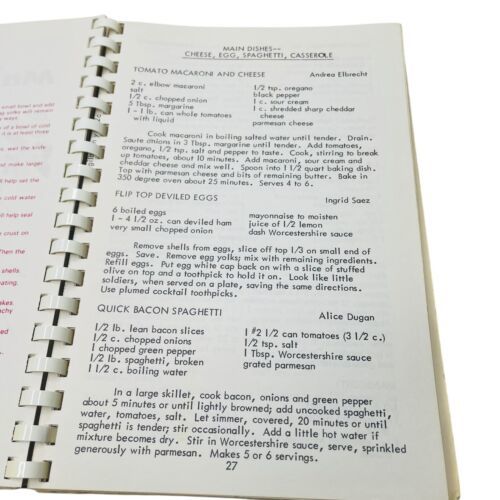 small bowl and add
yolks will remain
a bowl of cold
it is at least three
wet the knife
make larger
help set the
cold water
help seal
crust on
Then the
shells.
eating.
MAIN DISHES--
CHEESE, EGG, SPAGHETTI, CASSEROLE
TOMATO MACARONI AND CHEESE Andrea Elbrecht
2 c. elbow macaroni 1/2 tsp. oregano
salt black pepper
1/2 c. chopped onion 1 c. sour cream
5 Tbsp. margarine 1 c. shredded sharp cheddar
1 - 1 lb. can whole tomatoes cheese
with liquid parmesan cheese
Cook macaroni in boiling salted water until tender. Drain.
Saute onions in 3 Tbsp. margarine until tender. Add tomatoes,
oregano, 1/2 tsp. salt and pepper to taste. Cook, stirring to break
up tomatoes, about 10 minutes. Add macaroni, sour cream and
cheddar cheese and mix well. Spoon into 1 1/2 quart baking dish.
Top with parmesan cheese and bits of remaining butter. Bake in
350 degree oven about 25 minutes. Serves 4 to 6.
FLIP TOP DEVILED EGGS Ingrid Saez
6 boiled eggs mayonnaise to moisten
1 - 4 1/2 oz. can deviled ham juice of 1/2 lemon
very small chopped onion dash Worcestershire sauce
Remove shells from eggs, slice off top 1/3 on small end of
eggs. Save. Remove egg yolks; mix with remaining ingredients.
Refill eggs. Put egg white cap back on with a slice of stuffed
olive on top and a toothpick to hold it on. Look like little
soldiers, when served on a plate, saving the same directions.
Use plumed cocktail toothpicks.
QUICK BACON SPAGHETTI Alice Dugan
1/2 lb. lean bacon slices 1 #2 1/2 can tomatoes (3 1/2 c.)
1/2 c. chopped onions 1/2 tsp. salt
1 chopped green pepper 1 Tbsp. Worcestershire sauce
1/2 lb. spaghetti, broken grated parmesan
1 1/2 c. boiling water
In a large skillet, cook bacon, onions and green pepper
about 5 minutes or until lightly browned; add uncooked spaghetti,
water, tomatoes, salt. Let simmer, covered, 20 minutes or until
spaghetti is tender; stir occasionally. Add a little hot water if
mixture becomes dry. Stir in Worcestershire sauce, serve, sprinkled
generously with parmesan. Makes 5 or 6 servings.
27